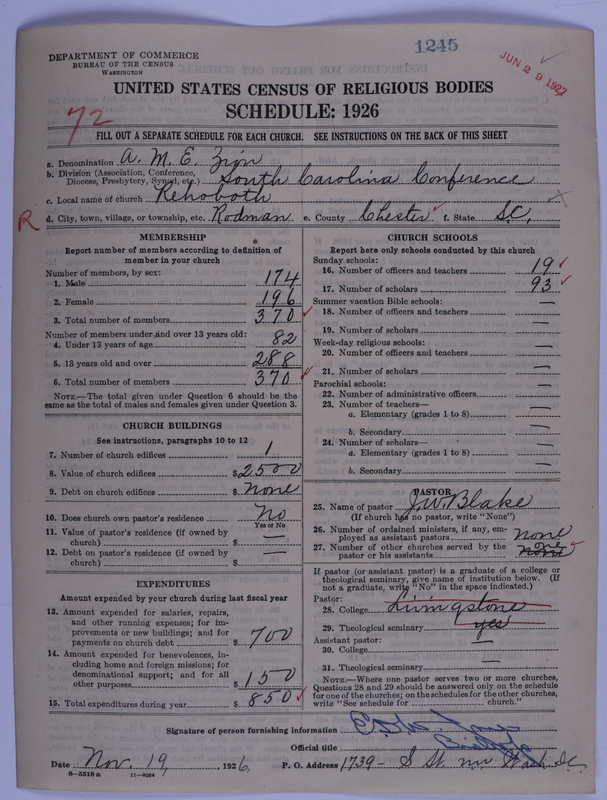 1245
JUN 29 1927
DEPARTMENT OF COMMERCE
BUREAU OF THE CENSUS
WASHINGTON
UNITED STATES CENSUS OF RELIGIOUS BODIES
SCHEDULE: 1926
72
FILL OUT A SEPARATE SCHEDULE FOR EACH CHURCH. SEE INSTRUCTIONS ON THE BACK OF THIS SHEET
a. Denomination A. M. E. Zion
b. Division (Association, Conference, Diocese, Presbytery, Synod, etc.) South Carolina Conference
c. Local name of church Rehoboth
R d. City, town, village, or township, etc. Rodman e. County Chester f. State S.C.
MEMBERSHIP
Report number of members according to definition of
member in your church
Number of members, by sex:
1. Male 174
2. Female 196
3. Total number of members 370
Number of members under and over 13 years old:
4. Under 13 years of age 82
5. 13 years old and over 288
6. Total number of members 370
NOTE.—The total given under Question 6 should be the
same as the total of males and females given under Question 3.
CHURCH BUILDINGS
See instructions, paragraphs 10 to 12
7. Number of church edifices 1
8. Value of church edifices $2500
9. Debt on church edifices $None
10. Does church own pastor's residence No
Yes or No
11. Value of pastor's residence (if owned by
church) $ —
12. Debt on pastor's residence (if owned by
church) $ —
EXPENDITURES
Amount expended by your church during last fiscal year
13. Amount expended for salaries, repairs,
and other running expenses; for im-
provements or new buildings; and for
payments on church debt $700
14. Amount expended for benevolences, in-
cluding home and foreign missions; for
denominational support; and for all
other purposes $150
15. Total expenditures during year $850
CHURCH SCHOOLS
Report here only schools conducted by this church
Sunday schools:
16. Number of officers and teachers 19
17. Number of scholars 93
Summer vacation Bible schools:
18. Number of officers and teachers —
19. Number of scholars —
Week-day religious schools:
20. Number of officers and teachers —
21. Number of scholars —
Parochial schools:
22. Number of administrative officers —
23. Number of teachers—
a. Elementary (grades 1 to 8) —
b. Secondary —
24. Number of scholars—
a. Elementary (grades 1 to 8) —
b. Secondary —
PASTOR
25. Name of pastor J. W. Blake
(If church has no pastor, write "None")
26. Number of ordained ministers, if any, em-
ployed as assistant pastors none
27. Number of other churches served by the
pastor or his assistants one
If pastor (or assistant pastor) is a graduate of a college or
theological seminary, give name of institution below. (If
not a graduate, write "No" in the space indicated.)
Pastor:
28. College Livingstone
29. Theological seminary yes
Assistant pastor: —
30. College
31. Theological seminary —
NOTE.—Where one pastor serves two or more churches,
Questions 28 and 29 should be answered only on the schedule
for one of the churches; on the schedules for the other churches,
write "See schedule for church."
Signature of person furnishing information
Official title
Date Nov. 19, 1926. P. O. Address 1739 - S St. nw Wash. D.C.
8—5518a 11—9054